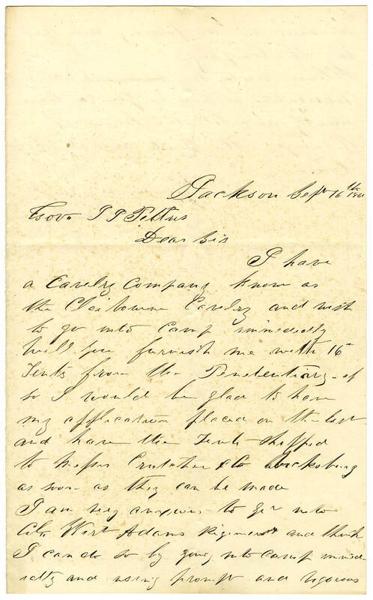 Jackson Sept 16th
Gov. J J Pettus
Dear Sir
I have
a Cavelry Company know as
the Claiborne Cavelry and wish
to go into Camp immedietly
Will you furnish me with 16
Tents from the Penetentiary - if
so I would be glad to have
my application placed on the list
and have the Tents shipped
to Messrs & Co Vicksburg
as soon as they can be made
I am very anxious to get into
Col. Wirt Adams Regiment and think
I can do so by going into Camp immed
ietly and using prompt and vigorous